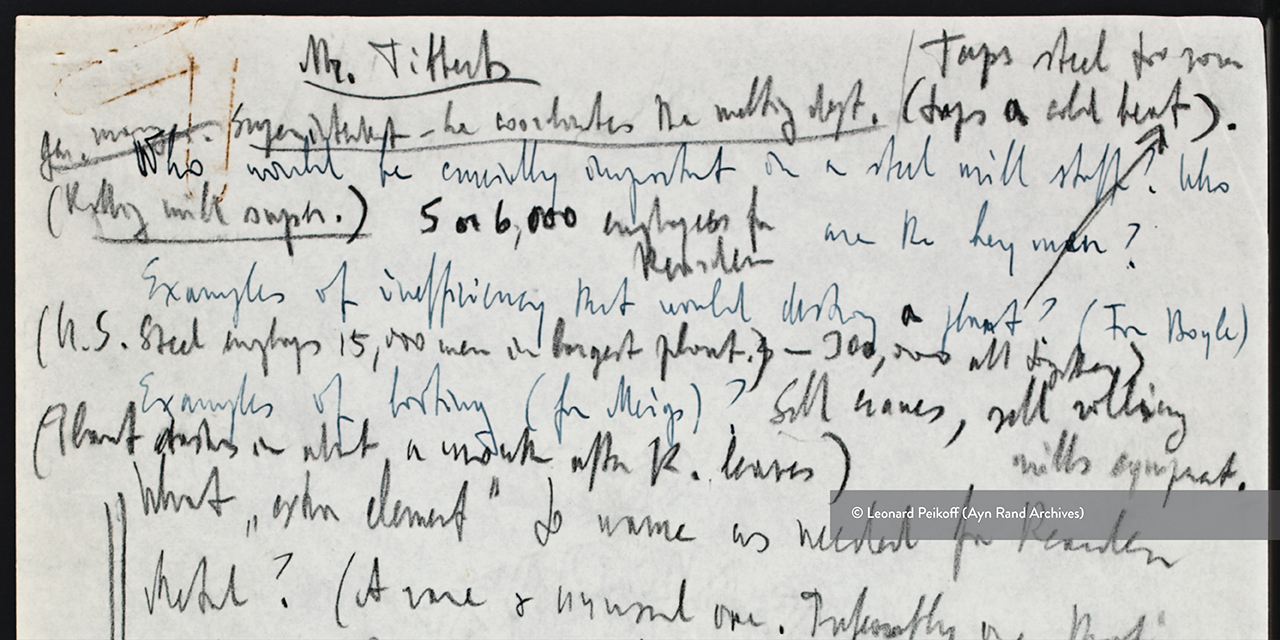 Mr. Tibbets
Taps steel too soon
(taps a cold heat).
gen. manager. Superintendent – he coordinates the melting dept.
Who would be crucially important on a steel mill staff? Who
are the key men?
(Rolling mill super.)
5 or 6,000 employees for
Rearden
Examples of inefficiency that would destroy a plant? (For Boyle)
(U.S. Steel employs 15,000 men in largest plant.) – 300,000 all together)
Examples of looting (for Meigs)? Sell cranes, sell rolling
mills equipment.
(Plant crashes in about a month after R. leaves)
What "extra element" to name as needed for Rearden
Metal? (A rare & unusual one. Preferably one that
© Leonard Peikoff (Ayn Rand Archives)